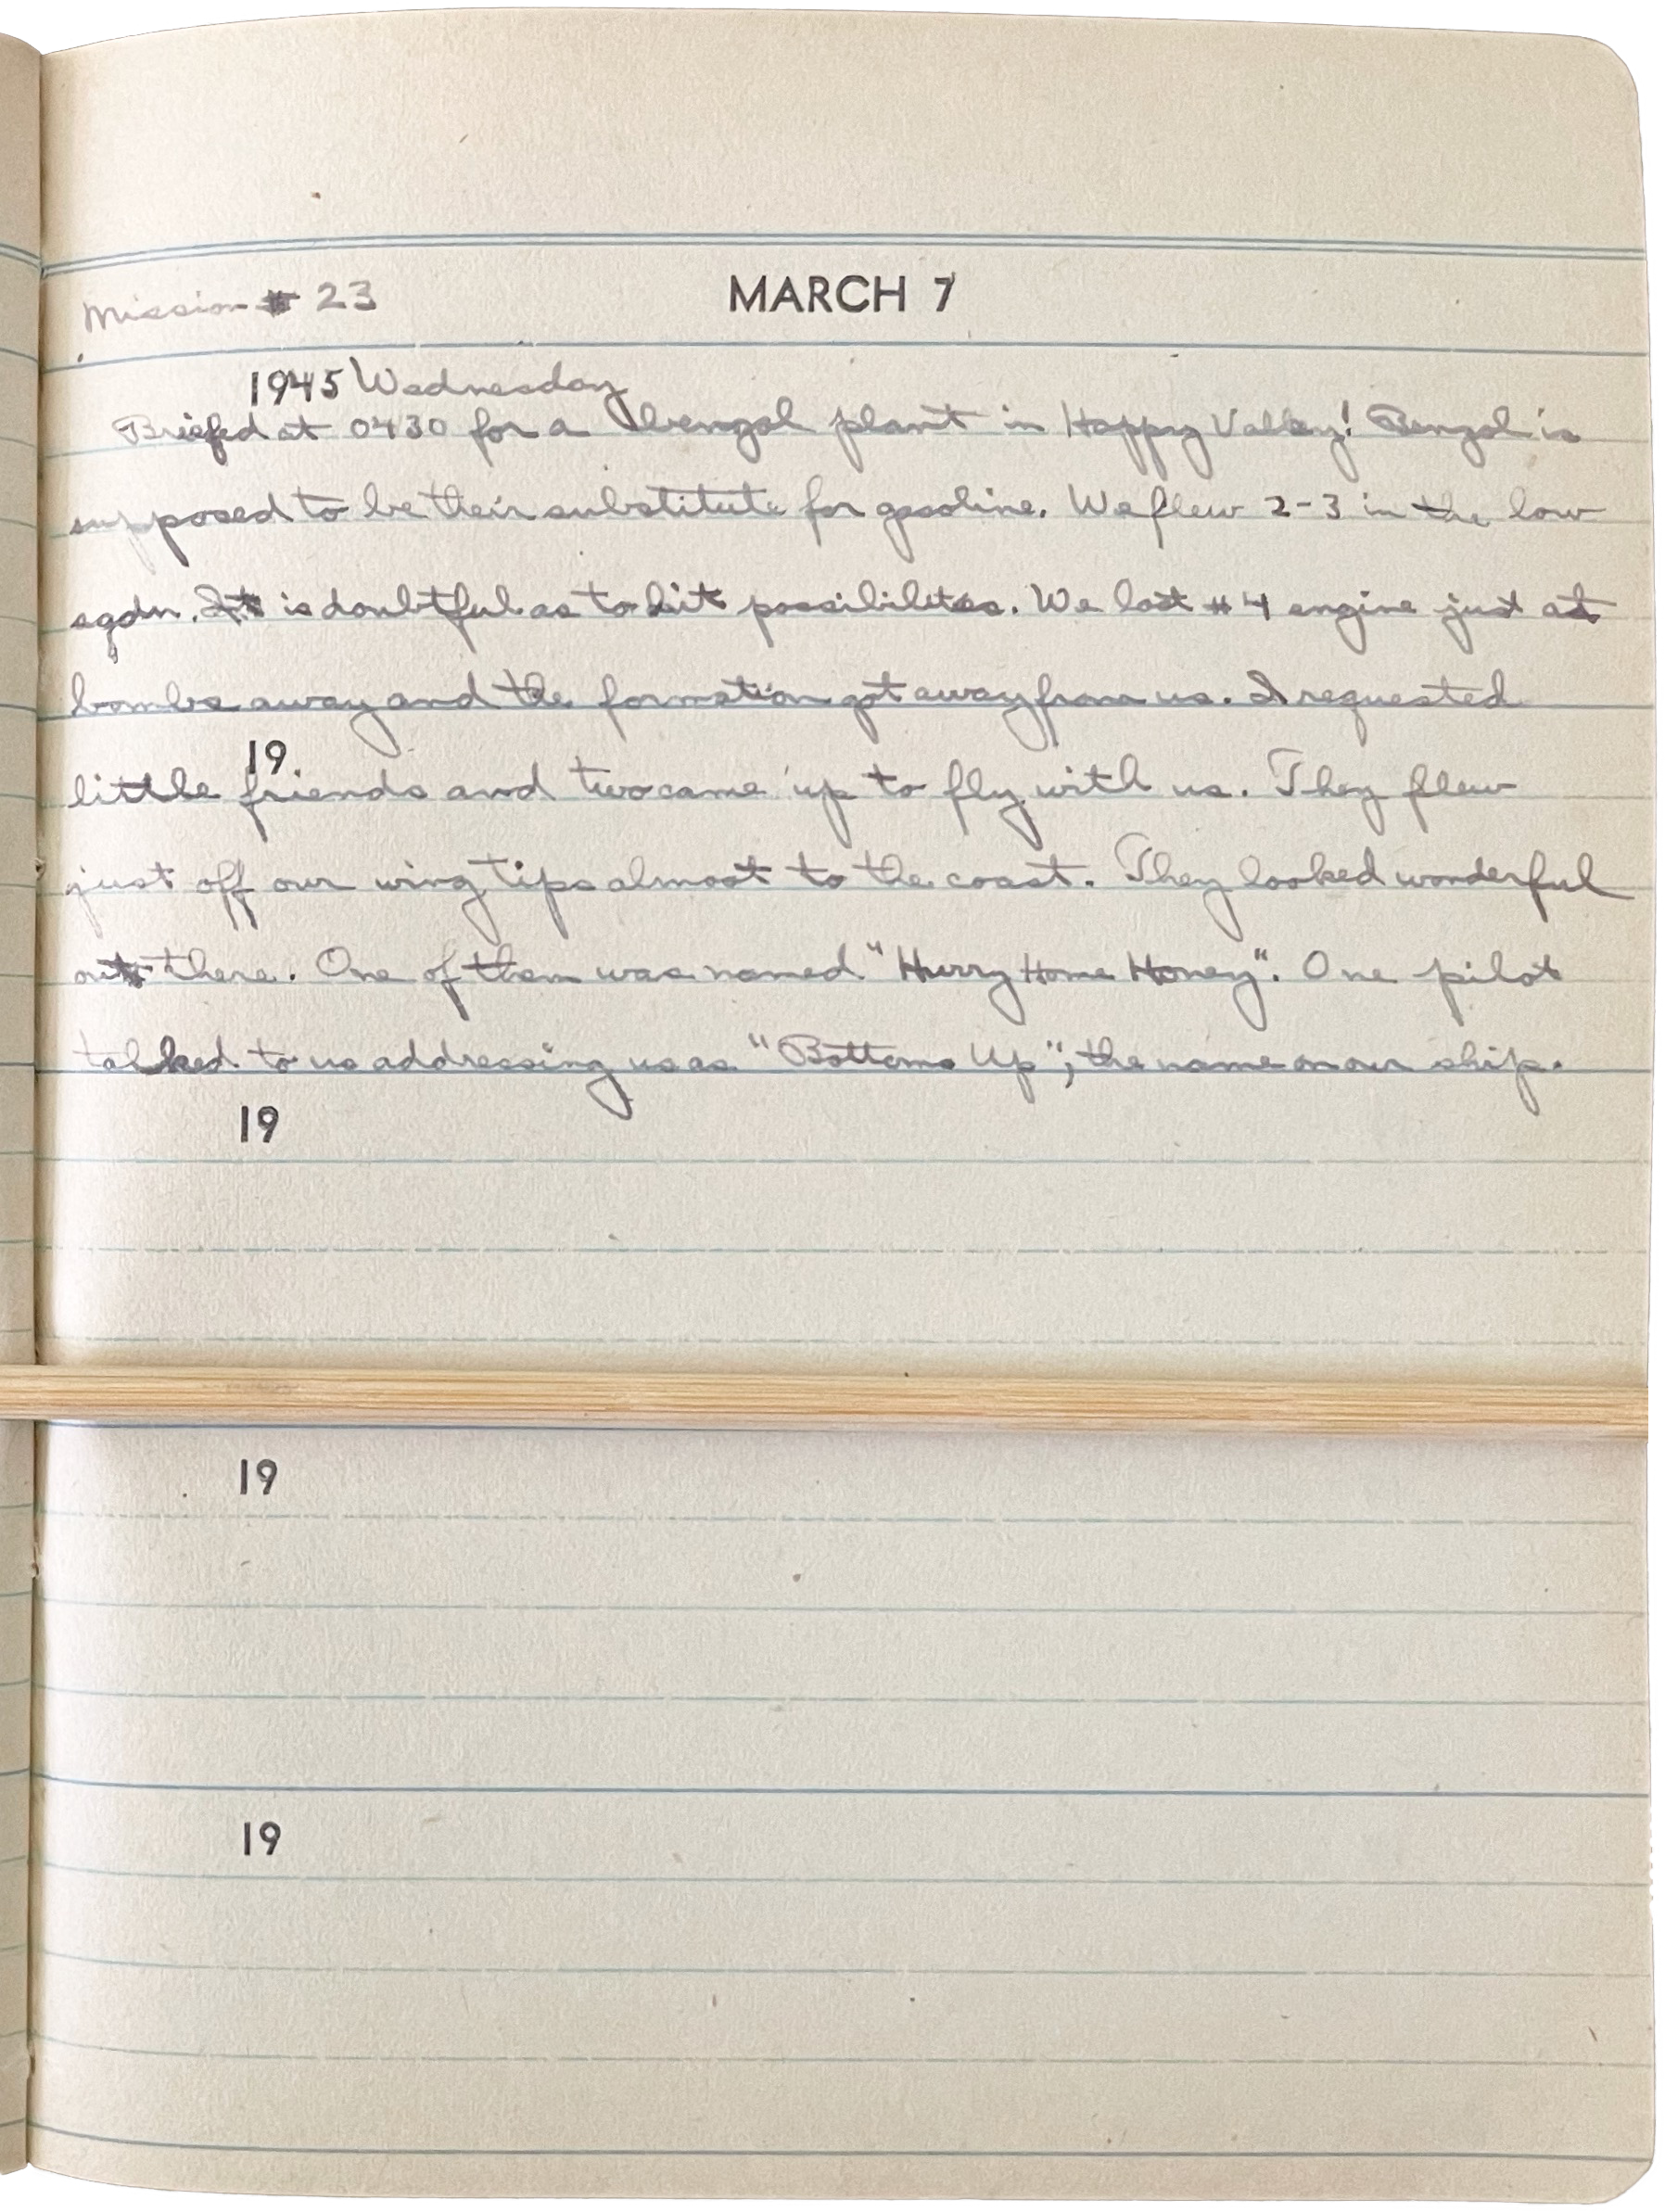 MARCH 7
Mission # 23
1945 Wednesday
Briefed at 0430 for a bengol plant in Happy Valley! Bengol is
supposed to be their substitute for gasoline. We flew 2-3 in the low
again. It is doubtful as to hit possibilites. We lost #4 engine just at
bombs away and the formation got away from us. I requested
19
little friends and two came up to fly with us. They flew
just off our wing tips almost to the coast. They looked wonderful
out there. One of them was named "Hurry Home Honey". One pilot
talked to us addressing us as "Bottoms Up"; the name on our ship.
19
19
19